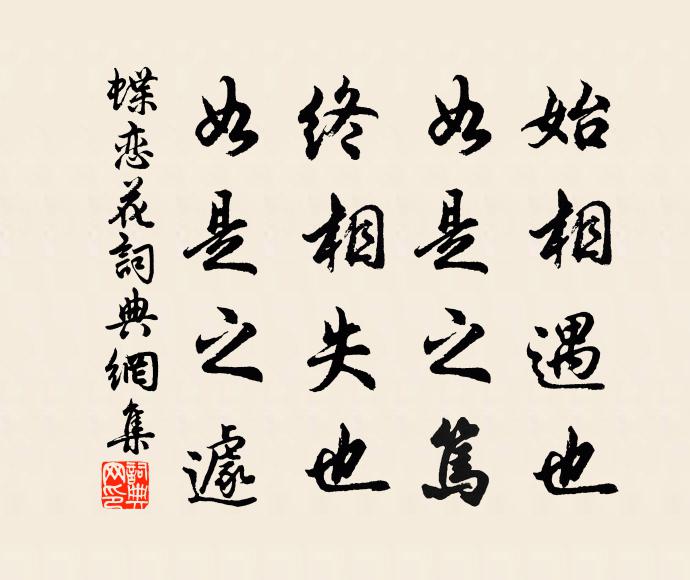 始相遇也
如是之篤
終相失也
如是之遽
蝶恋花詞典網集
詞典网印